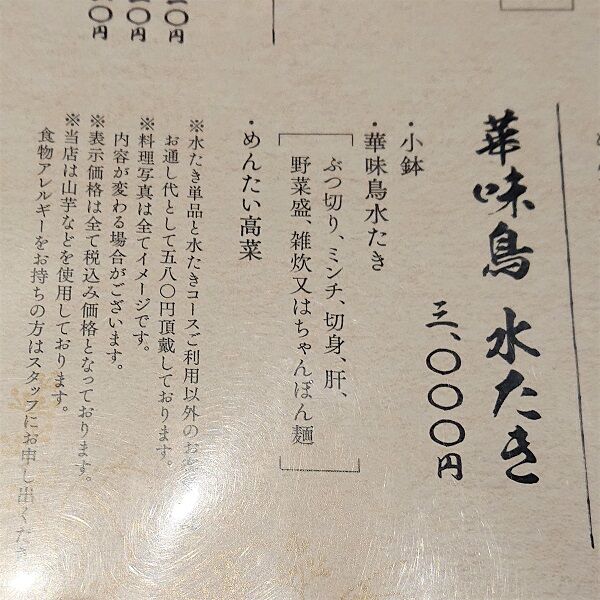 華味鳥 水たき
三、〇〇〇円
・小鉢
・華味鳥水たき
ぶつ切り、ミンチ、切身、肝、
野菜盛、雑炊又はちゃんぽん麺
・めんたい高菜
※水たき単品と水たきコースご利用以外のお
お通し代として五八〇円頂戴しております。
※料理写真は全てイメージです。
内容が変わる場合がございます。
※表示価格は全て税込み価格となっております。
※当店は山芋などを使用しております。
食物アレルギーをお持ちの方はスタッフにお申し出くださ
〇円
〇〇円